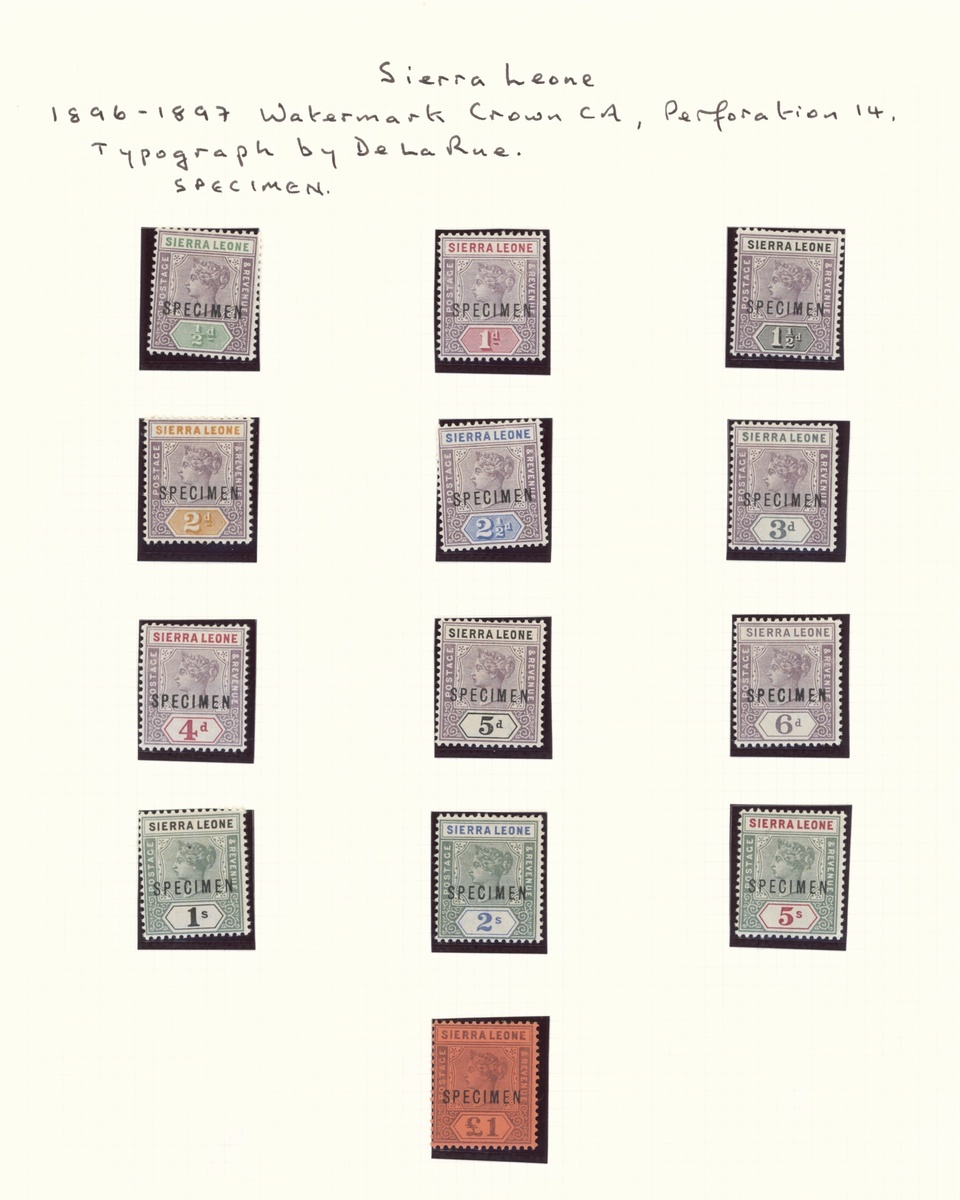 Sierra Leone
1896-1897 Watermark Crown CA, Perforation 14.
Typograph by De La Rue.
SPECIMEN.
SIERRA LEONE
POSTAGE & REVENUE
SPECIMEN
½d
SIERRA LEONE
POSTAGE & REVENUE
SPECIMEN
1d
SIERRA LEONE
POSTAGE & REVENUE
SPECIMEN
1½d
SIERRA LEONE
POSTAGE & REVENUE
SPECIMEN
2d
SIERRA LEONE
POSTAGE & REVENUE
SPECIMEN
2½d
SIERRA LEONE
POSTAGE & REVENUE
SPECIMEN
3d
SIERRA LEONE
POSTAGE & REVENUE
SPECIMEN
4d
SIERRA LEONE
POSTAGE & REVENUE
SPECIMEN
5d
SIERRA LEONE
POSTAGE & REVENUE
SPECIMEN
6d
SIERRA LEONE
POSTAGE & REVENUE
SPECIMEN
1s
SIERRA LEONE
POSTAGE & REVENUE
SPECIMEN
2s
SIERRA LEONE
POSTAGE & REVENUE
SPECIMEN
5s
SIERRA LEONE
POSTAGE & REVENUE
SPECIMEN
£1